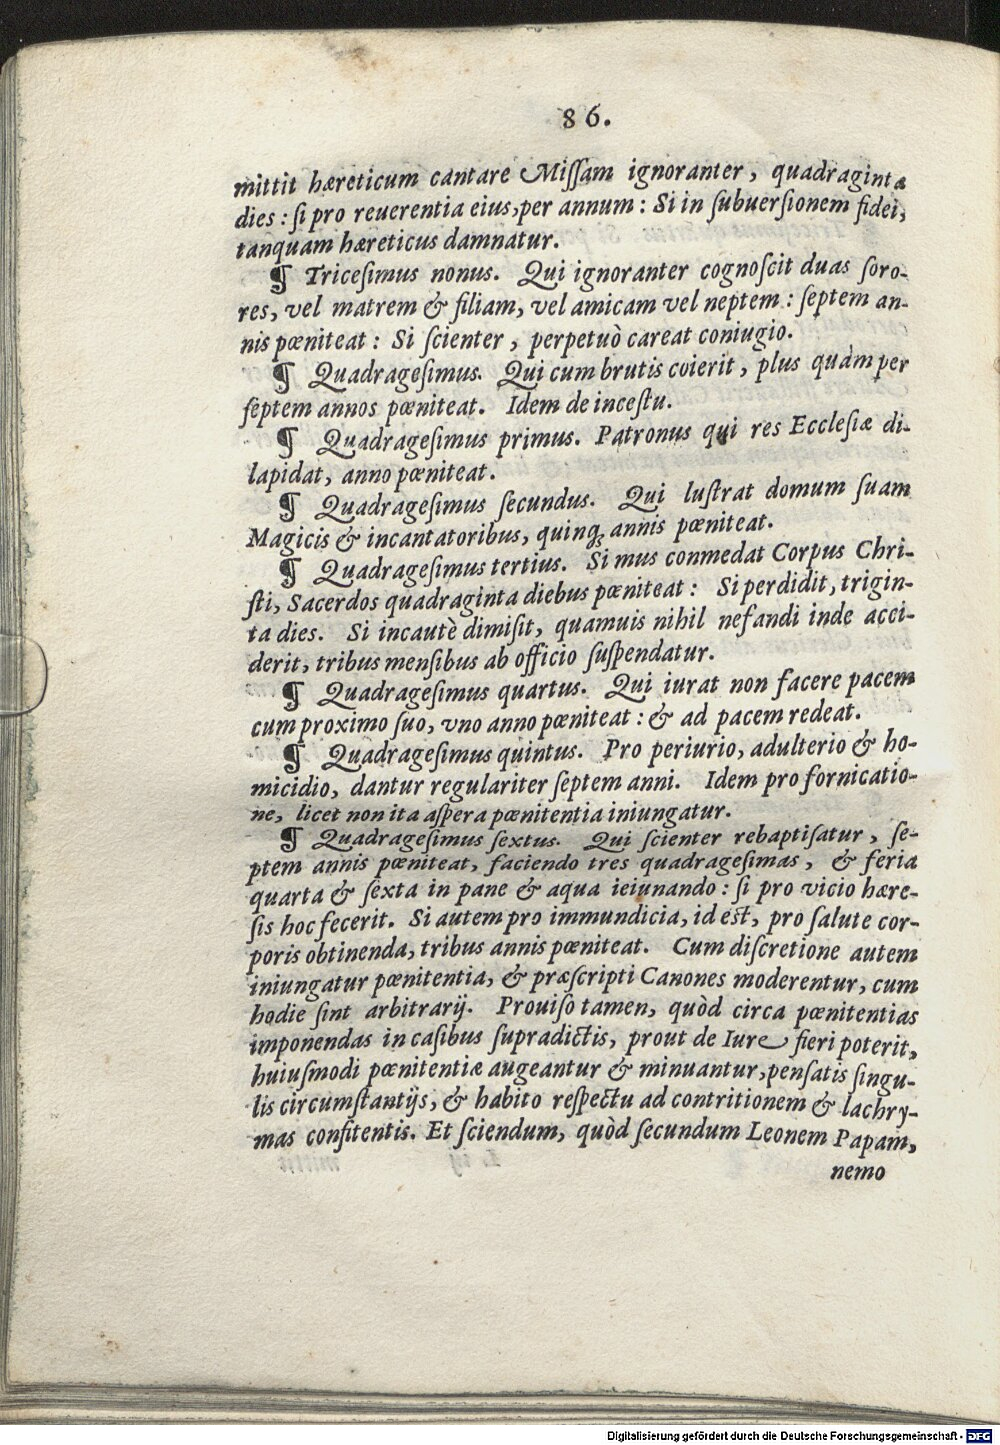 86.
mittit hæreticum cantare Miſſam ignoranter, quadraginta
dies: ſi pro reuerentia eius, per annum: Si in ſubuerſionem fidei,
tanquam hæreticus damnatur.
¶ Triceſimus nonus. Qui ignoranter cognoſcit duas ſoro-
res, vel matrem & filiam, vel amicam vel neptem: ſeptem an-
nis pœniteat: Si ſcienter, perpetuò careat coniugio.
¶ Quadrageſimus. Qui cum brutis coierit, plus quàm per
ſeptem annos pœniteat. Idem de inceſtu.
¶ Quadrageſimus primus. Patronus qui res Eccleſiæ di-
lapidat, anno pœniteat.
¶ Quadrageſimus ſecundus. Qui luſtrat domum ſuam
Magicis & incantatoribus, quinq; annis pœniteat.
¶ Quadrageſimus tertius. Si mus conmedat Corpus Chri-
ſti, Sacerdos quadraginta diebus pœniteat: Si perdidit, trigin-
ta dies. Si incautè dimiſit, quamuis nihil nefandi inde acci-
derit, tribus menſibus ab officio ſuſpendatur.
¶ Quadrageſimus quartus. Qui iurat non facere pacem
cum proximo ſuo, vno anno pœniteat: & ad pacem redeat.
¶ Quadrageſimus quintus. Pro periurio, adulterio & ho-
micidio, dantur regulariter ſeptem anni. Idem pro fornicatio-
ne, licet non ita aſpera pœnitentia iniungatur.
¶ Quadrageſimus ſextus. Qui ſcienter rebaptiſatur, ſe-
ptem annis pœniteat, faciendo tres quadrageſimas, & feria
quarta & ſexta in pane & aqua ieiunando: ſi pro vicio hære-
ſis hoc fecerit. Si autem pro immundicia, id est, pro ſalute cor-
poris obtinenda, tribus annis pœniteat. Cum diſcretione autem
iniungatur pœnitentia, & præſcripti Canones moderentur, cum
hodie ſint arbitrarij. Prouiſo tamen, quòd circa pœnitentias
imponendas in caſibus ſupradictis, prout de Iure fieri poterit,
huiuſmodi pœnitentiæ augeantur & minuantur, penſatis ſingu-
lis circumſtantijs, & habito reſpectu ad contritionem & lachry-
mas confitentis. Et ſciendum, quòd ſecundum Leonem Papam,
nemo
Digitalisierung gefördert durch die Deutsche Forschungsgemeinschaft - DFG